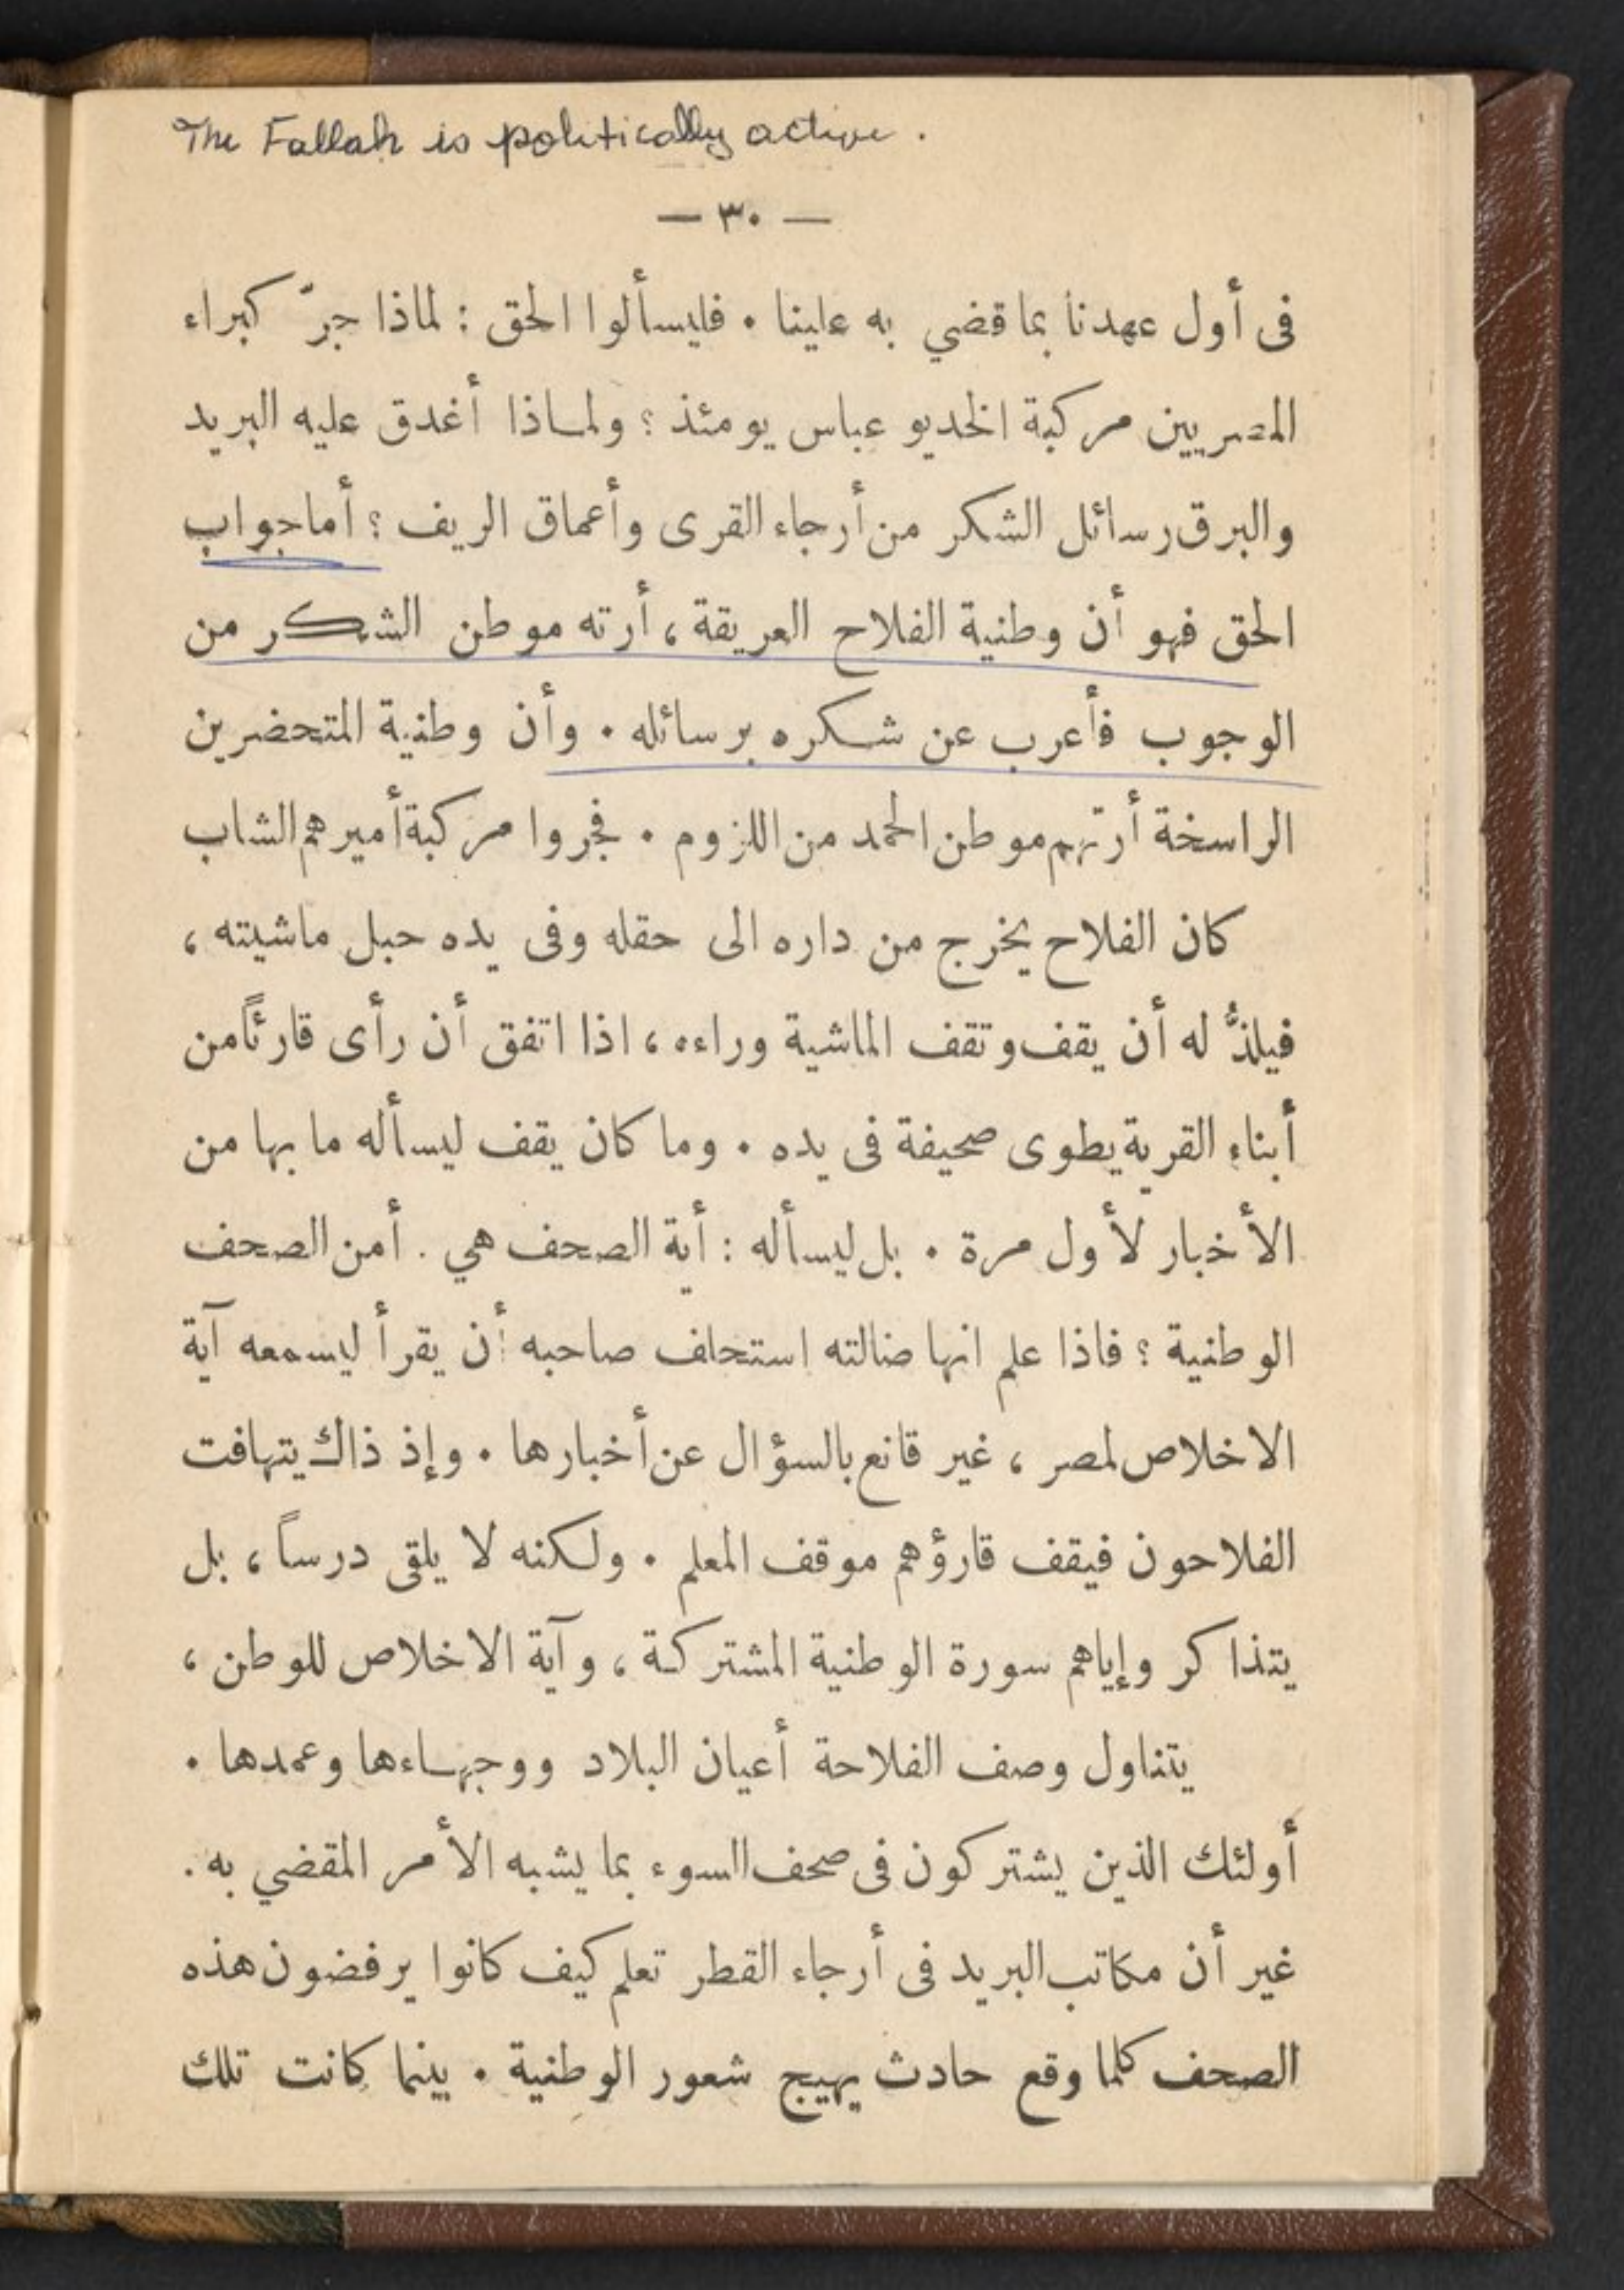 The Fallah is politically active .
— ٣٠ —
فى أول عهدنا بما قضي به علينا . فليسألوا الحق : لماذا جرّ كبراء
المصريين مركبة الخديو عباس يومئذ ؟ ولماذا أغدق عليه البريد
والبرق رسائل الشكر من أرجاء القرى وأعماق الريف ؟ أما جواب
الحق فهو أن وطنية الفلاح العريقة ، أرته موطن الشكر من
الوجوب فأعرب عن شكره برسائله . وأن وطنية المتحضرين
الراسخة أرتهم موطن الحمد من اللزوم . فجروا مركبة أميرهم الشاب
كان الفلاح يخرج من داره الى حقله وفى يده حبل ماشيته ،
فيلذُّ له أن يقف وتقف الماشية وراءه ، اذا اتفق أن رأى قارئاً من
أبناء القرية يطوى صحيفة فى يده . وما كان يقف ليسأله ما بها من
الأخبار لأول مرة . بل ليسأله : أية الصحف هي . أمن الصحف
الوطنية ؟ فاذا علم انها ضالته استحلف صاحبه أن يقرأ ليسمعه آية
الاخلاص لمصر ، غير قانع بالسؤال عن أخبارها . وإذ ذاك يتهافت
الفلاحون فيقف قارؤهم موقف المعلم . ولكنه لا يلقى درساً ، بل
يتذاكر وإياهم سورة الوطنية المشتركة ، وآية الاخلاص للوطن ،
يتناول وصف الفلاحة أعيان البلاد ووجهاءها وعمدها .
أولئك الذين يشتركون فى صحف السوء بما يشبه الأمر المقضي به .
غير أن مكاتب البريد فى أرجاء القطر تعلم كيف كانوا يرفضون هذه
الصحف كلما وقع حادث يهيج شعور الوطنية . بينما كانت تلك